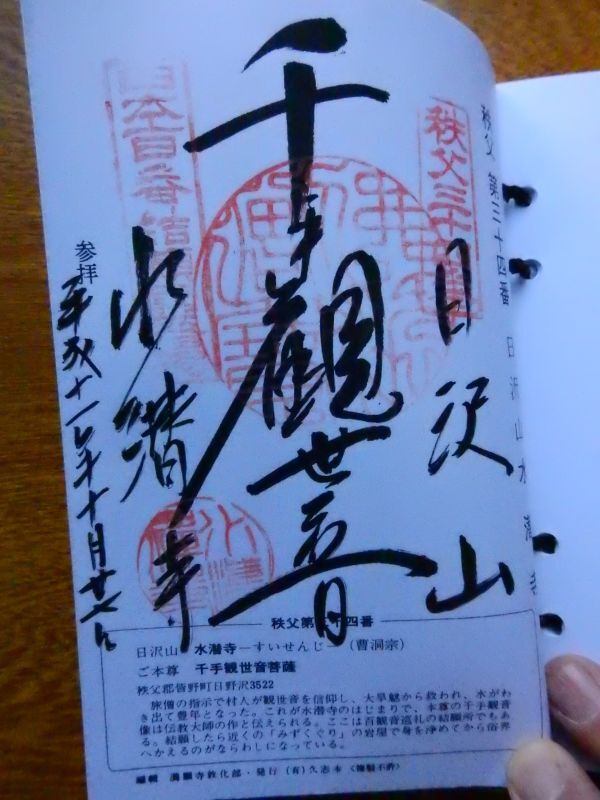 秩父 第三十四番 日沢山水潜寺
秩父三十
日沢山
千手観世音
日本百番結
水潜寺
参拝
平成十一年十月廿七日
秩父第三十四番
日沢山 水潜寺―すいせんじ―(曹洞宗)
ご本尊 千手観世音菩薩
秩父郡皆野町日野沢3522
旅僧の指示で村人が観世音を信仰し、大旱魃から救われ、水がわ
き出て豊年となった。これが水潜寺のはじまりで、本尊の千手観音
像は伝教大師の作と伝えられる。ここは百観音巡礼の結願所でもあ
る。結願したら近くの「みずくぐり」の岩屋で身を浄めてから俗界
へかえるのがならわしになっている。
編輯 満願寺教化部・発行 (有)久志本〈複製不許〉